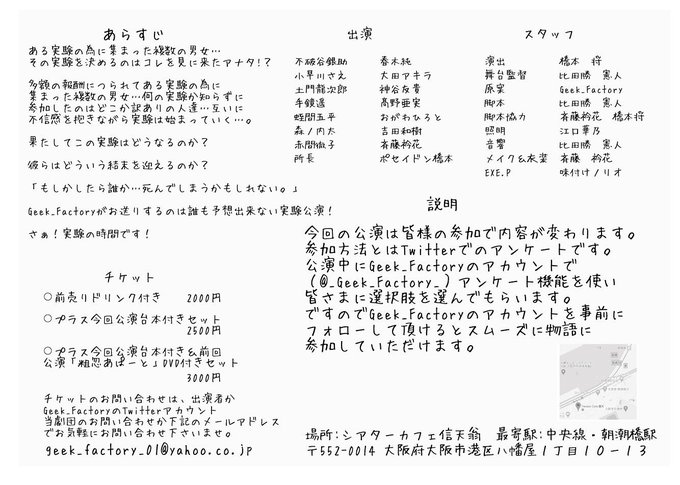 あらすじ
ある実験の為に集まった複数の男女…
その実験を決めるのはコレを見に来たアナタ!?
多額の報酬につられてある実験の為に
集まった複数の男女…何の実験か知らずに
参加したのはどこか訳ありの人達…互いに
不信感を抱きながら実験は始まっていく…。
果たしてこの実験はどうなるのか?
彼らはどういう結末を迎えるのか?
「もしかしたら誰か…死んでしまうかもしれない。」
Geek_Factoryがお送りするのは誰も予想出来ない実験公演!
さぁ!実験の時間です!
チケット
○前売りドリンク付き 2000円
○プラス今回公演台本付きセット
2500円
○プラス今回公演台本付き&前回
公演「粗忽あぱーと」DVD付きセット
3000円
チケットのお問い合わせは、出演者か
Geek_FactoryのTwitterアカウント
当劇団のお問い合わせか下記のメールアドレス
でお気軽にお問い合わせ下さいませ。
geek_factory_01@yahoo.co.jp
出演
不破谷銀助 春木純
小早川さえ 大田アキラ
土門龍次郎 神谷友貴
手鏡遥 高野亜実
蛭間五平 おがわひろと
森ノ内太 吉田和樹
赤間徹子 斉藤衿花
所長 ポセイドン橋本
スタッフ
演出 橋本 将
舞台監督 比田勝 憲人
原案 Geek_Factory
脚本 比田勝 憲人
脚本協力 斉藤衿花 橋本将
照明 江口華乃
音響 比田勝 憲人
メイク&衣装 斉藤 衿花
EXE.P 味付けノリオ
説明
今回の公演は皆様の参加で内容が変わります。
参加方法とはTwitterでのアンケートです。
公演中にGeek_Factoryのアカウントで
(@_Geek_Factory_)アンケート機能を使い
皆さまに選択肢を選んでもらいます。
ですのでGeek_Factoryのアカウントを事前に
フォローして頂けるとスムーズに物語に
参加していただけます。
場所:シアターカフェ信天翁 最寄駅:中央線・朝潮橋駅
〒552-0014 大阪府大阪市港区八幡屋1丁目10-13